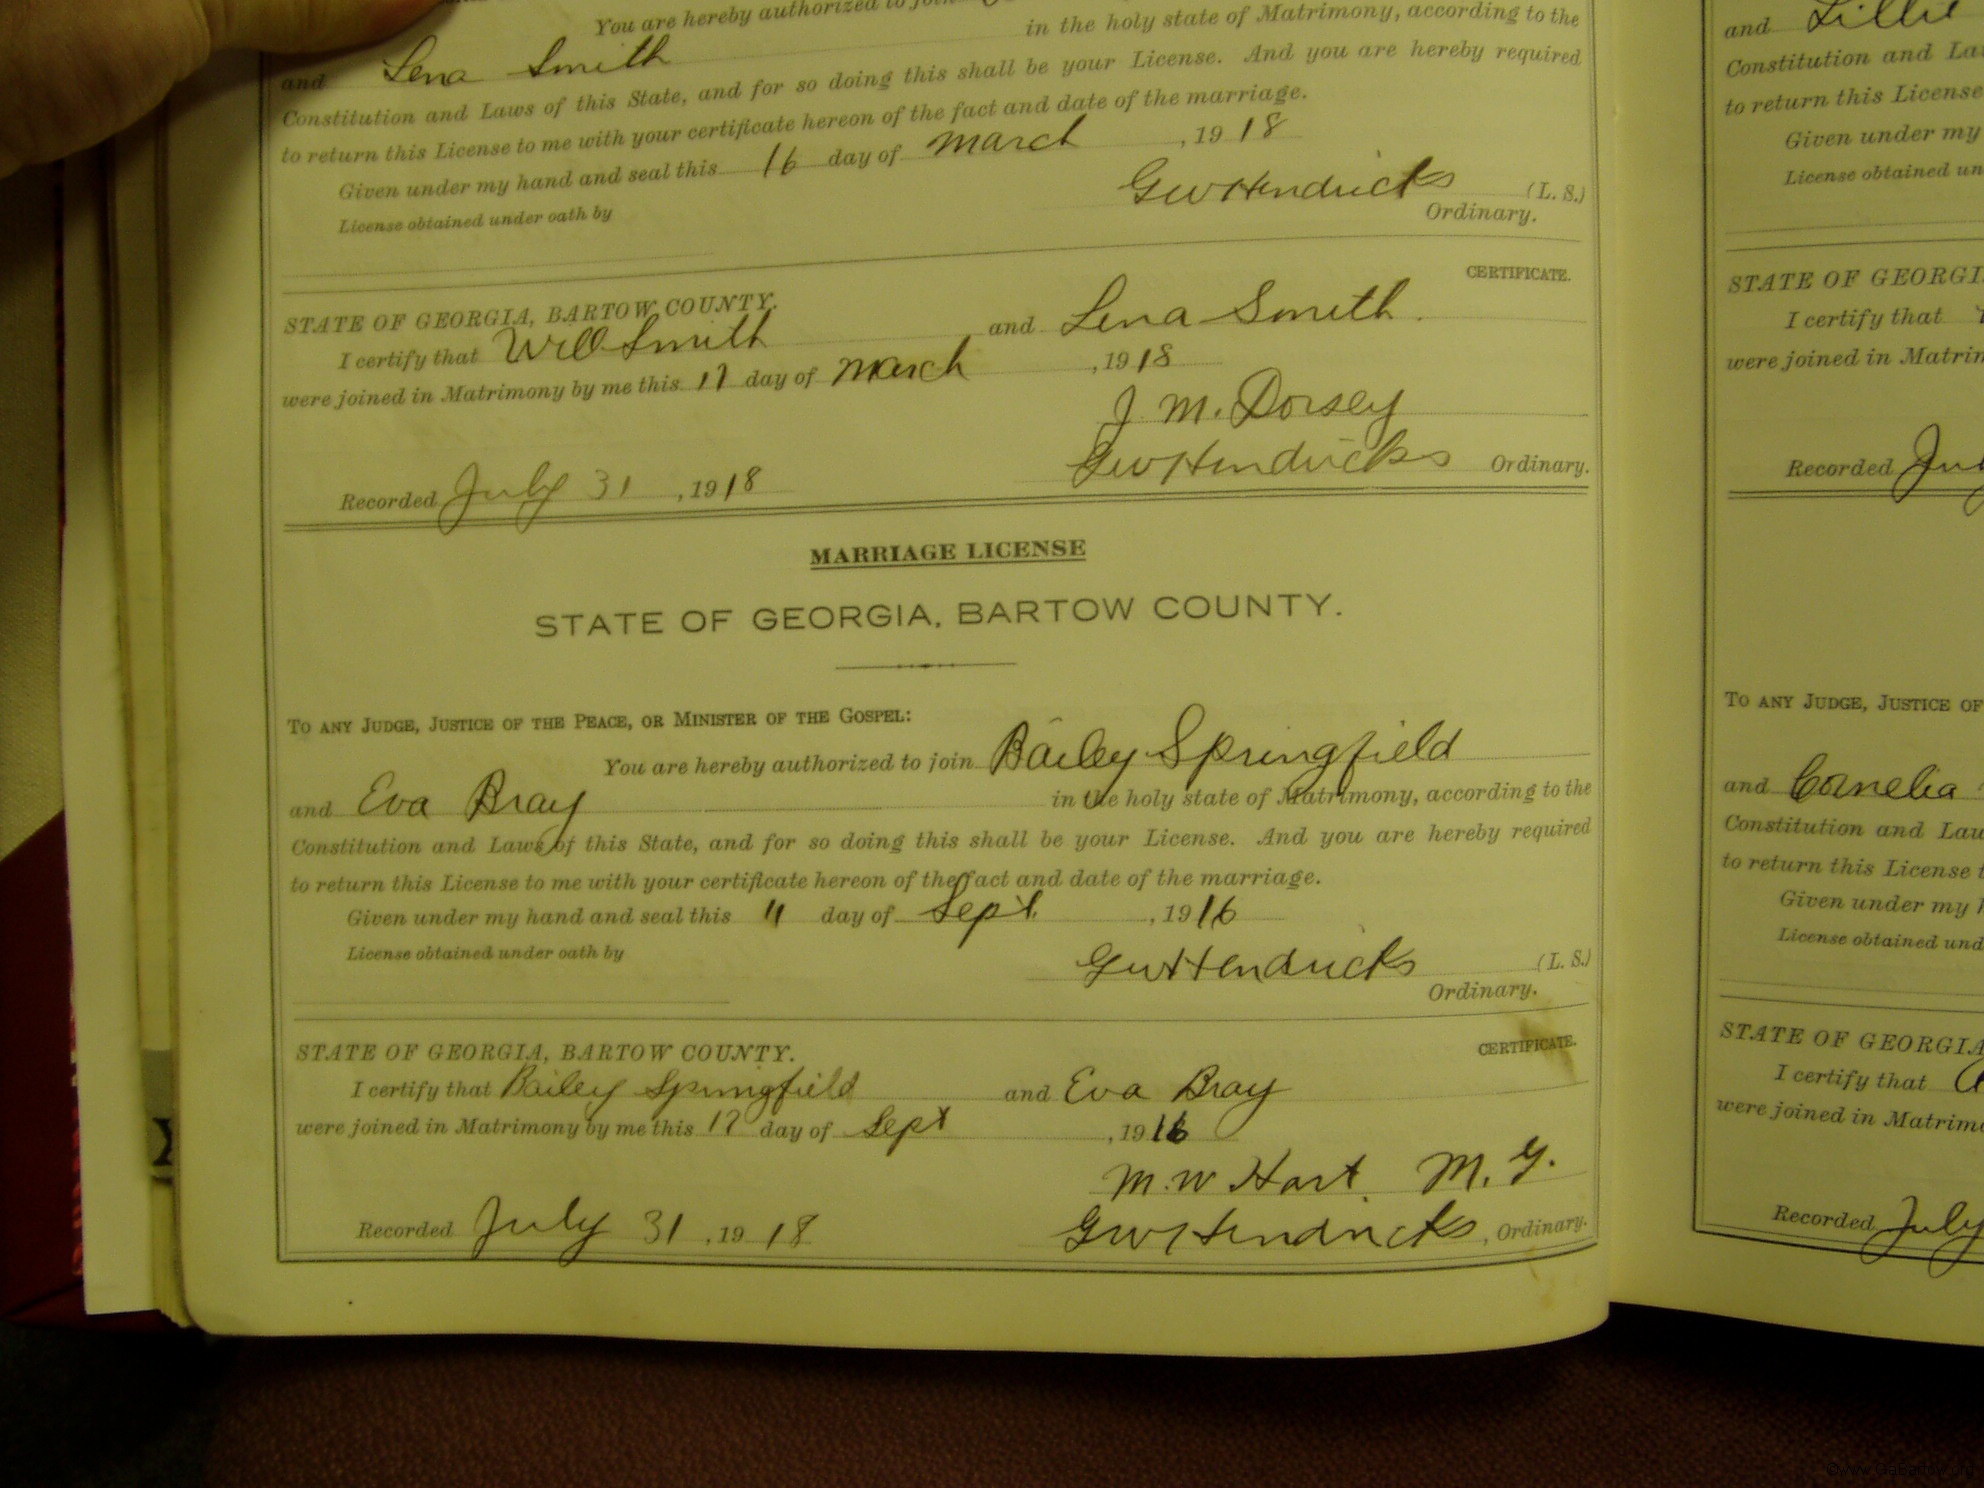 You are hereby authorized to join
in the holy state of Matrimony, according to the
and Lena Smith
Constitution and Laws of this State, and for so doing this shall be your License. And you are hereby required
to return this License to me with your certificate hereon of the fact and date of the marriage.
Given under my hand and seal this 16 day of March , 1918
License obtained under oath by
GW Hendricks (L. S.)
Ordinary.
CERTIFICATE.
STATE OF GEORGIA, BARTOW COUNTY.
I certify that Will Smith and Lena Smith.
were joined in Matrimony by me this 17 day of March , 1918
J. M. Dorsey
Recorded July 31 , 1918 GW Hendricks Ordinary.
MARRIAGE LICENSE
STATE OF GEORGIA, BARTOW COUNTY.
TO ANY JUDGE, JUSTICE OF THE PEACE, OR MINISTER OF THE GOSPEL:
You are hereby authorized to join Bailey Springfield
and Eva Bray in the holy state of Matrimony, according to the
Constitution and Laws of this State, and for so doing this shall be your License. And you are hereby required
to return this License to me with your certificate hereon of the fact and date of the marriage.
Given under my hand and seal this 11 day of Sept. , 1916
License obtained under oath by
GW Hendricks (L. S.)
Ordinary.
CERTIFICATE.
STATE OF GEORGIA, BARTOW COUNTY.
I certify that Bailey Springfield and Eva Bray
were joined in Matrimony by me this 17 day of Sept , 1916
M. W Hart. M. G.
Recorded July 31 , 1918 GW Hendricks , Ordinary.
and Lillie
Constitution and
to return this License
Given under my
License obtained
STATE OF
I certify that
were joined in
Recorded
TO ANY JUDGE, JUSTICE OF
and Cornelia
Constitution and
to return this License
Given under my
License obtained
STATE OF
I certify that
were joined in
Recorded July
©www.GaBartow.org